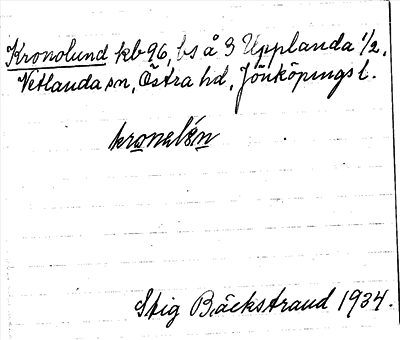 Kronolund kb 96, bs å 3 Upplanda 1/2,
Vetlanda sn, Östra hd, Jönköpings l.
Stig Bäckstrand 1934.